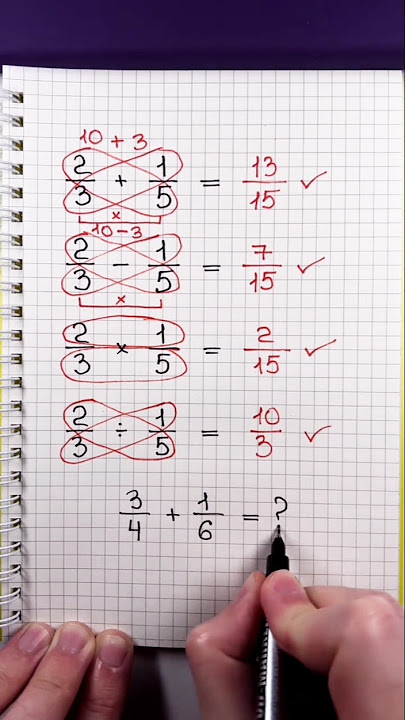 10 + 3
2/3 + 1/5 = 13/15 ✓
×
10-3
2/3 - 1/5 = 7/15 ✓
×
2/3 × 1/5 = 2/15 ✓
2/3 ÷ 1/5 = 10/3 ✓
3/4 + 1/6 = ?